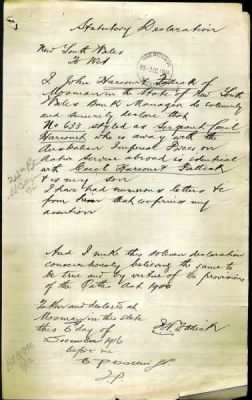 Statutory Declaration
New South Wales
To Wit
I John Harcourt of
Mosman in the State of New South
Wales Bank Manager do solemnly
and sincerely declare that
No 633 styled as Sergeant Cecil
Harcourt who is away with the
Australian Imperial Forces on
Active Service abroad is identical
with Cecil Harcourt
& is my son
I have had numerous letters &c
from him that confirms my
assertion
And I make this solemn declaration
conscientiously believing the same to
be true and by virtue of the provisions
of the Oaths Act 1900
Taken and declared at
Mosman in this state
this 6 day of
December 1916
before me
JP